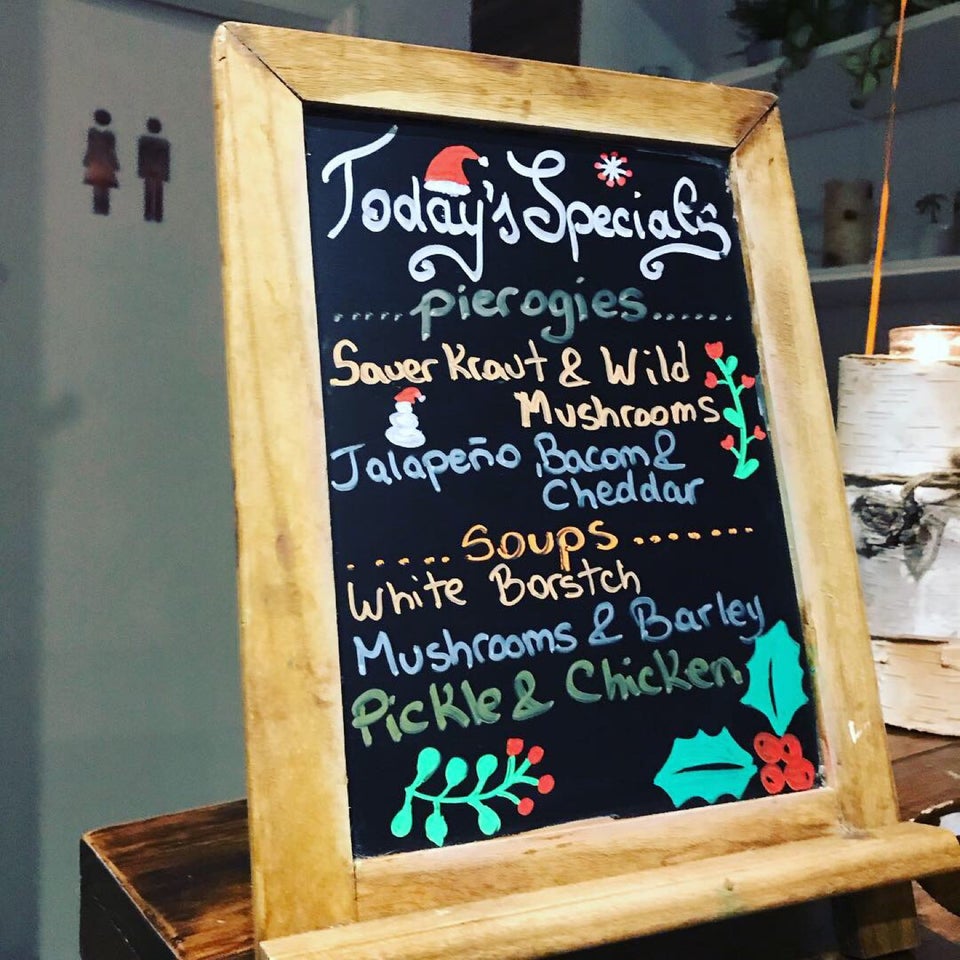 Today's Specials
.....pierogies......
SauerKraut & Wild
Mushrooms
Jalapeño, Bacom &
Cheddar
......Soups........
White Borstch
Mushrooms & Barley
Pickle & Chicken.